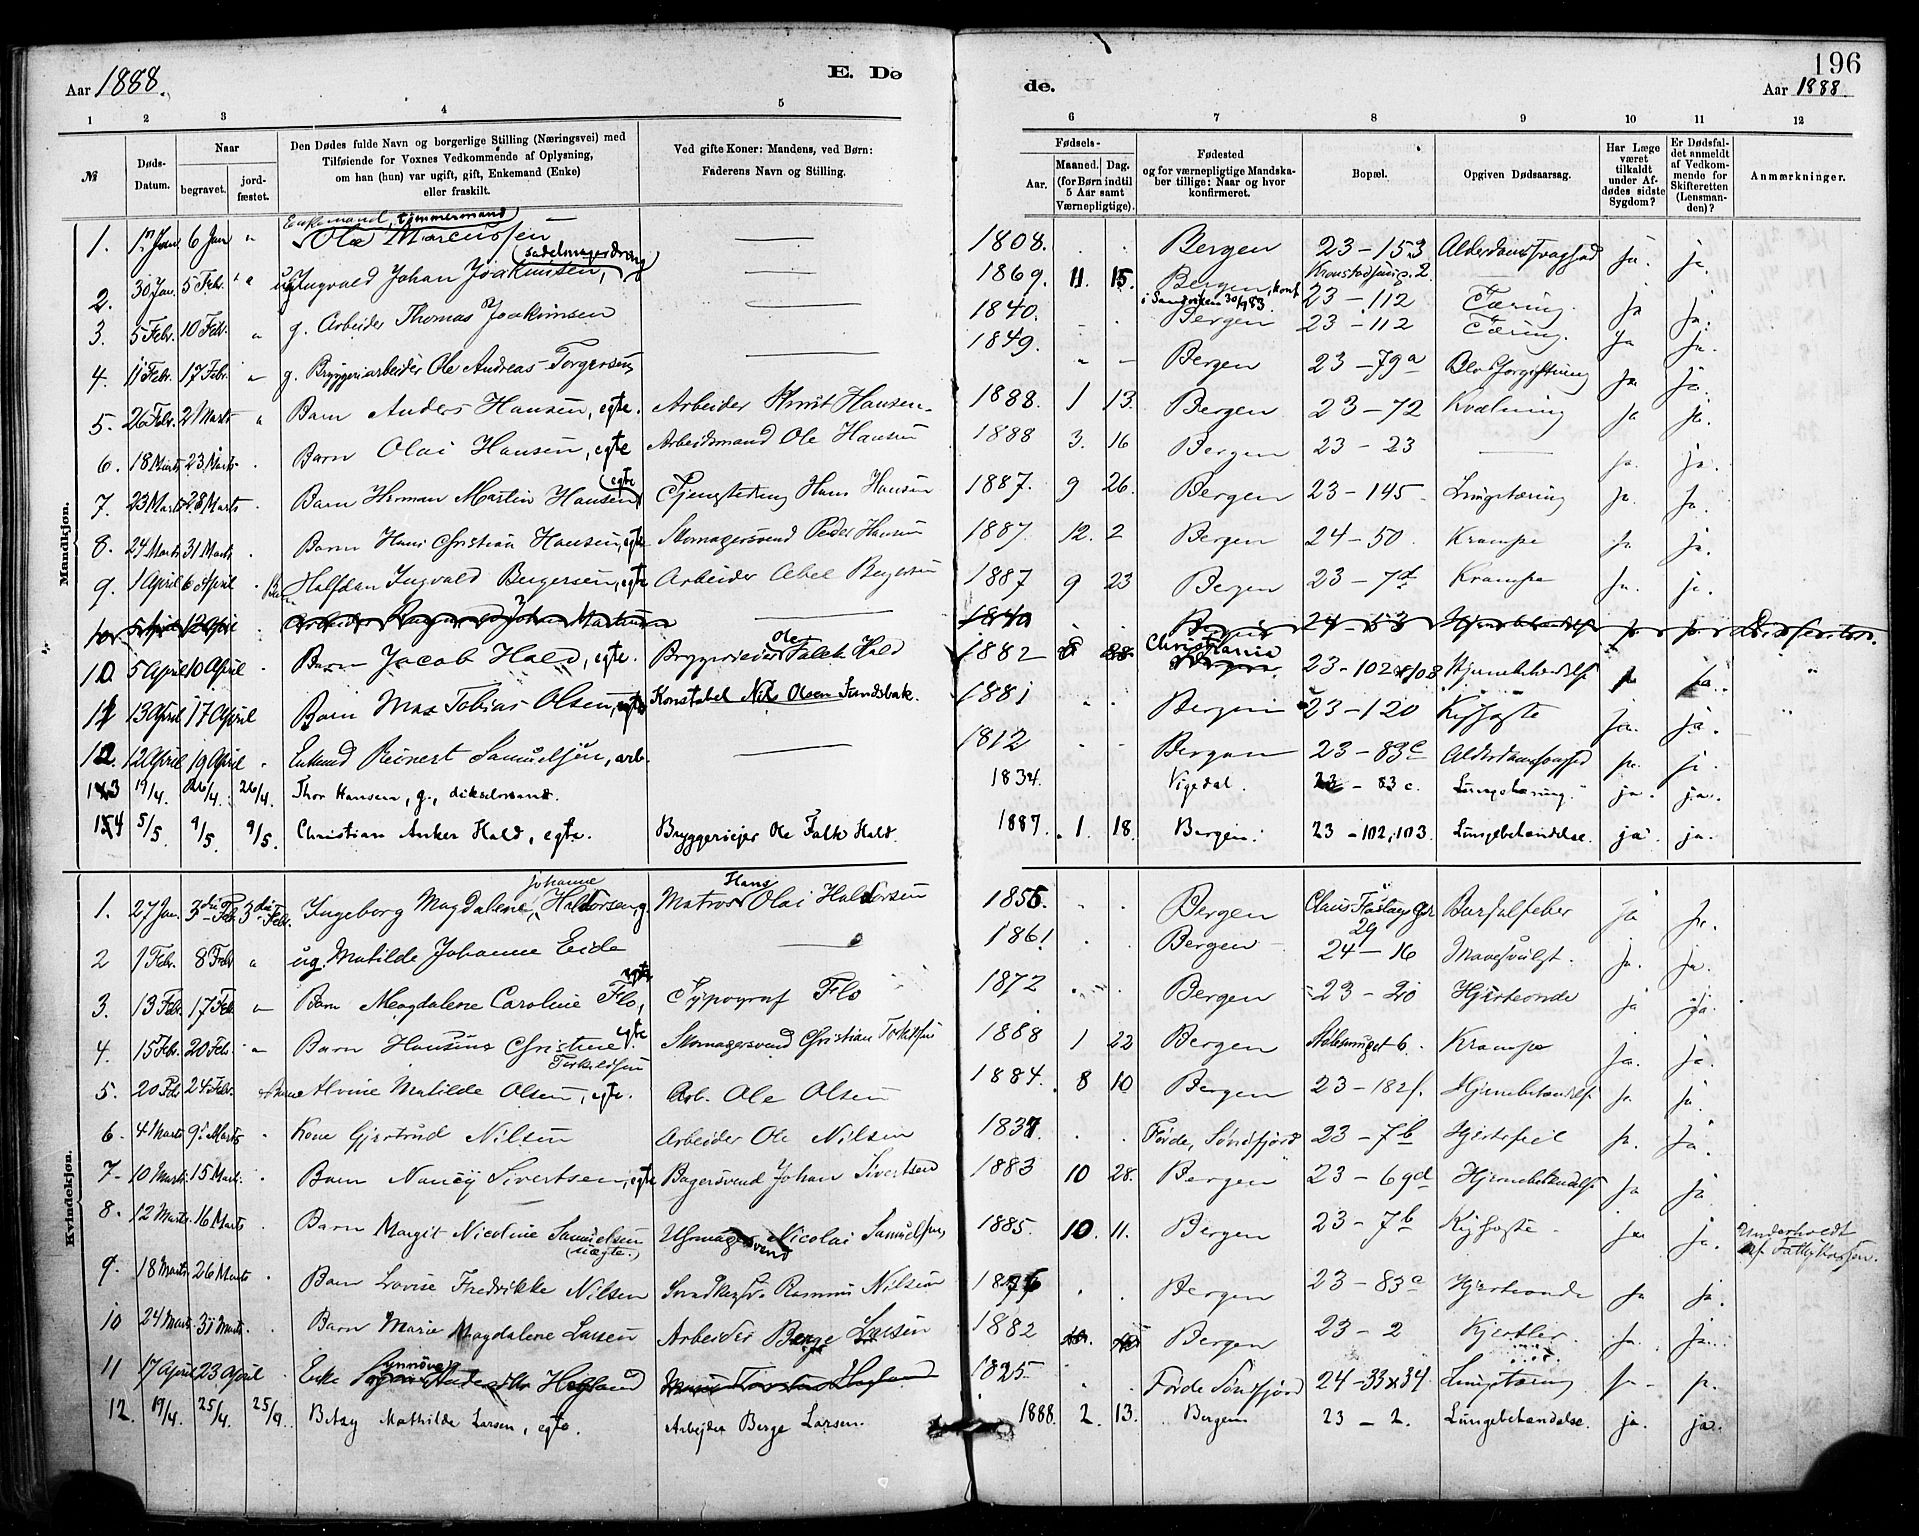 Aar 1888.
E. Dø
de.
196
Aar 1888.
1 2 3 4 5 6 7 8 9 10 11 12
№
Døds-Datum.
Naar
begravet.
jord-fæstet.
Den Dødes fulde Navn og borgerlige Stilling (Næringsvei) med
Tilføiende for Voxnes Vedkommende af Oplysning,
om han (hun) var ugift, gift, Enkemand (Enke)
eller fraskilt.
Ved gifte Koner: Mandens, ved Børn:
Faderens Navn og Stilling.
Fødsels-
Aar.
Maaned. Dag.
(for Børn indtil
5 Aar samt
Værnepligtige).
Fødested
og for værnepligtige Mandska-
ber tillige: Naar og hvor
konfirmeret.
Bopæl.
Opgiven Dødsaarsag.
Har Læge
været
tilkaldt
under Af-
dødes sidste
Sygdom?
Er Dødsfal-
det anmeldt
af Vedkom-
mende for
Skifteretten
(Lensman-
den)?
Anmærkninger.
Mandkjøn.
Enkemand, tømmermand
1. 6 Jan " Ole Marcussen — 1808. . . Bergen 23-153 ja. ja.
sadelmagerdreng
2. 30 Jan. 5 Febr. " ug Ingvald Johan Joakimsen, — 1869. 11. 15. Bergen, konf. i Sandviken 30/9 83 23-112 Tæring. ja ja.
3. 5 Febr. 10 Febr. " g. Arbeider Thomas Joakimsen 1840. . . Bergen 23-112 Tæring. ja ja.
4. 11 Febr. 17 Febr. " g. Bryggeriarbeider Ole Andreas Torgersen — 1849. " - Bergen 23-79a Blodforgiftning ja ja.
5. 26 Febr. 2 Marts " Barn Anders Hansen, egte. Arbeider Knut Hansen. 1888. 1 13. Bergen 23-72 Kvælning ja ja.
6. 18 Marts 23 Marts . Barn Olai Hansen, egte Arbeidsmand Ole Hansen 1888 3. 16 Bergen 23-23 — ja. ja.
7. 23 Marts 28 Marts . Barn Herman Martin Hansen egte Hans Hansen 1887. 9 26. Bergen 23-145. Lungetæring ja. ja.
8. 24 Marts 31 Marts . Barn Hans Christian Hansen, egte Skomagersvend Peder Hansen 1887. 12. 2 Bergen 24-50. Krampe ja. ja.
9. 1 April 6 April . Barn Halfdan Ingvald Bergersen, egte Arbeider Abel Bergersen 1887 9 23 Bergen 23-7d Krampe ja. ja.
10 5 April 12 April Arbeider Johan — 1840 Bergen 24-53 Hjernebetændelse ja ja
10. 5 April 10 April . Barn Jacob Hald, egte. Bryggerieier Ole Falck Hald 1882 Christiania Bergen. 23-102 & 103 Hjernebetændelse ja ja. "
11 13 April 17 April Barn Max Tobias Olsen, egte Konstabel Nils Olsen Sundsbak. 1881 . . Bergen 23-120 Kighoste ja. ja. "
12. 12 April 19 April . Enkemd Reinert Samuelsen, arb. — 1812 . . Bergen 23-83c ja. ja.
13 19/4. 26/4. 26/4. Thor Hansen, g., 1834. Vigedal. 23-83c. Lungetæring. ja. ja.
14 5/5. 9/5. 9/5. Christian Anker Hald, egte. Bryggerieier Ole Falk Hald. 1887. 1. 18. Bergen. 23-102, 103. Lungebetændelse. ja. ja.
Kvindekjøn.
1. 27 Jan. 3die Feb. 3die Febr. Ingeborg Magdalene Johanne Haldorsen g. Matros Hans Olai Haldorsen 1856. . . Bergen 29 Barselfeber ja ja.
2 1 Febr. 8 Febr " ug. Matilde Johanne Eide — 1861 . . Bergen 24-16 Mavesvulst. ja. ja.
3. 13 Febr 17 Feb " Barn Magdalene Caroline Flo, egte Typograf Flo 1872 . . Bergen 23-20 Hjerteonde ja ja.
4. 15 Feb. 20 Feb. " Barn Hansine Christine Torkildsen egte Skomagersvend Christian Torkildsen 1888 1 22 Bergen Krampe ja. ja
5. 20 Feb 24 Febr. Alvine Matilde Olsen, egte. Arb. Ole Olsen 1884. 8 10. Bergen 23-182f. Hjernebetændelse ja. ja.
6. 4 Marts 9 Marts . Kone Gjertrud Nilsen Arbeider Ole Nilsen 1837. . . Førde, Søndfjord 23-7b Hjertefeil ja. ja.
7. 10 Marts 15 Mart. . Barn Nancy Sivertsen, egte Bagersvend Johan Sivertsen 1883 10 28. Bergen 23-69d Hjernebetændelse ja ja.
8. 12 Marts 16 Marts . Barn Margit Nicoline Samuelsen (uægte.) Uhrmagersvend Nicolai Samuelsen 1885. 10. 11. Bergen 23-7b Kighoste ja. ja. Underholdt af Fattigkassen.
9. 18 Marts 26 Marts . Barn Lovise Fredrikke Nilsen Rasmus Nilsen 1876 . . Bergen 23-83c Hjerteonde ja ja.
10 24 Marts 31 Marts . Barn Marie Magdalene Larsen Arbeider Berge Larsen 1882 Bergen 23-2 Kjertler ja. ja.
11 17 April 23 April . Enke Synnøve Hegland 1825. . . Førde Søndfjord 24-33 & 34. Lungetæring ja. ja.
12. 19/4. 25/4. 25/4. Betsy Mathilde Larsen, egte. Arbejder Berge Larsen. 1888. 2. 13. Bergen 23-2. Lungebetændelse. ja. ja.